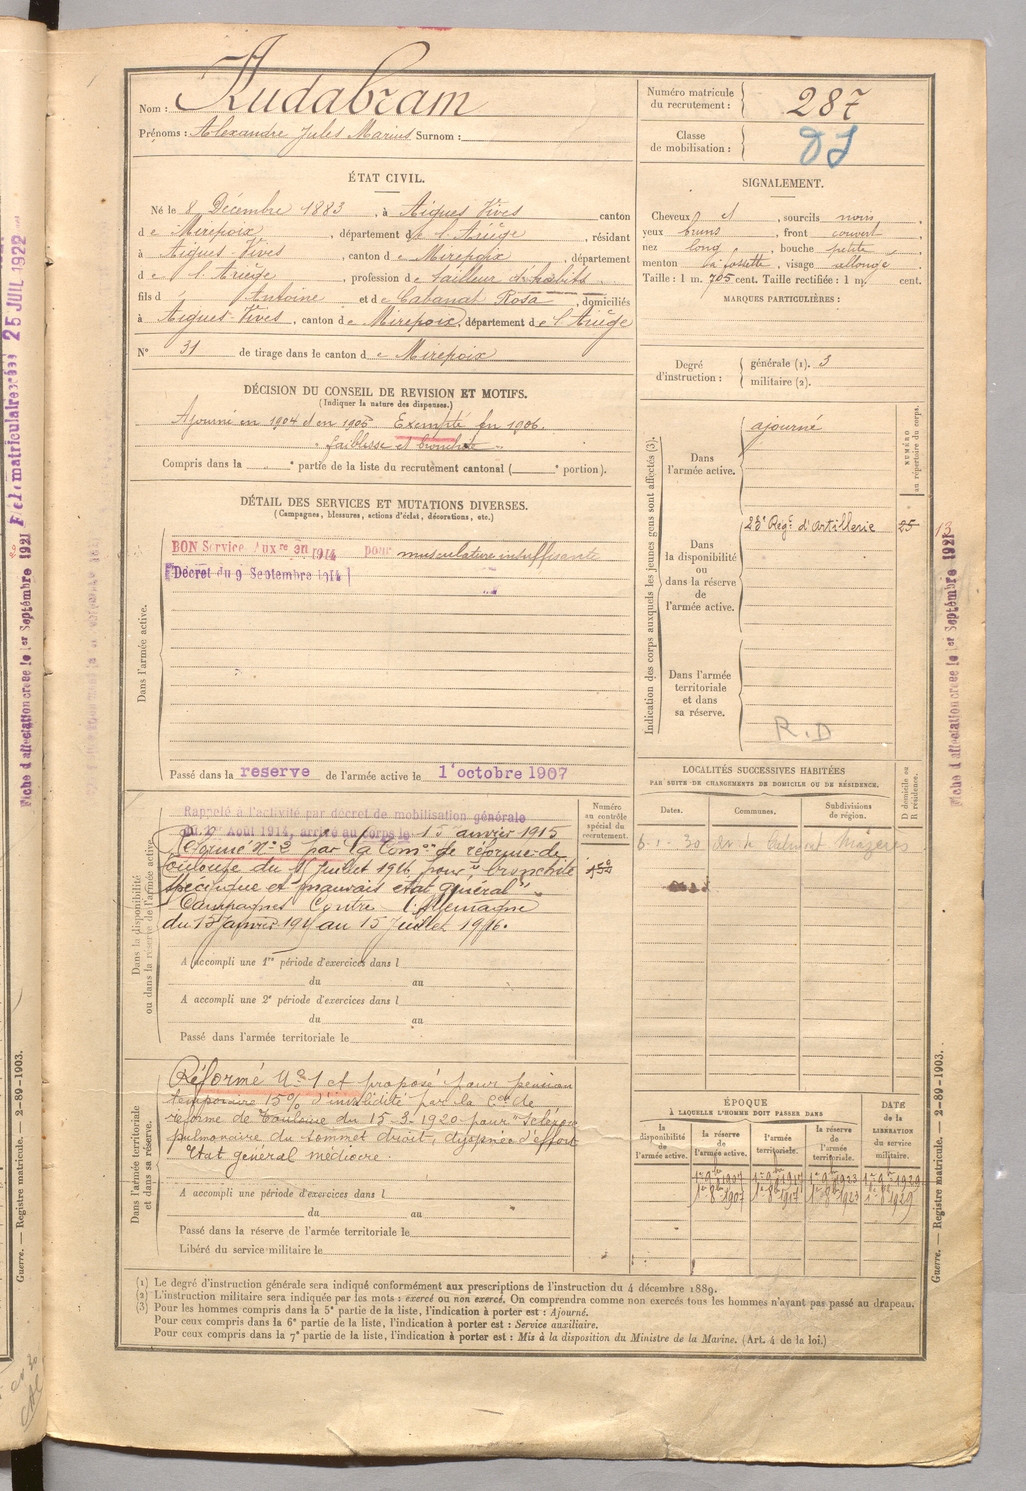 Nom : Audabram
Prénoms : Alexandre Jules Marius Surnom :
Numéro matricule du recrutement : 287
Classe de mobilisation :
ÉTAT CIVIL.
Né le 8 Décembre 1883, à Aigues Vives canton
de Mirepoix, département de l'Ariège, résidant
à Aigues-Vives, canton de Mirepoix, département
de l'Ariège, profession de tailleur d'habits
fils d' Antoine et de Cabanat Rosa, domiciliés
à Aigues-Vives, canton de Mirepoix, département de l'Ariège
N° 31 de tirage dans le canton de Mirepoix
SIGNALEMENT.
Cheveux et, sourcils noirs,
yeux bruns, front couvert,
nez long, bouche petite,
menton à fossette, visage allongé
Taille : 1 m. 705 cent. Taille rectifiée : 1 m. cent.
MARQUES PARTICULIÈRES :
Degré d'instruction : générale (1). 3
militaire (2).
DÉCISION DU CONSEIL DE REVISION ET MOTIFS.
(Indiquer la nature des dispenses.)
Ajourné en 1904 et en 1905 Exempté en 1906.
" faiblesse et bronchite "
Compris dans la " e partie de la liste du recrutement cantonal ( e portion).
DÉTAIL DES SERVICES ET MUTATIONS DIVERSES.
(Campagnes, blessures, actions d'éclat, décorations, etc.)
Dans l'armée active.
BON Service Aux re en 1914 pour musculature insuffisante
Décret du 9 Septembre 1914
Passé dans la reserve de l'armée active le 1er octobre 1907
Indication des corps auxquels les jeunes gens sont affectés (3).
NUMÉRO au répertoire du corps.
Dans l'armée active.
ajourné
Dans la disponibilité ou dans la réserve de l'armée active.
23e Regt d'Artillerie 25
13
Dans l'armée territoriale et dans sa réserve.
R.D
Dans la disponibilité ou dans la réserve de l'armée active.
Rappelé à l'activité par décret de mobilisation générale
du 1er Août 1914, arrivé au corps le 15 Janvier 1915
Réformé N° 2 par la Comon de réforme de
Toulouse du 15 Juillet 1916 pour "bronchite
spécifique et mauvais état général"
Campagnes Contre l'Allemagne
du 15 Janvier 1915 au 15 Juillet 1916.
Numéro au contrôle spécial du recrutement.
A accompli une 1re période d'exercices dans l
du au
A accompli une 2e période d'exercices dans l
du au
Passé dans l'armée territoriale le
LOCALITÉS SUCCESSIVES HABITÉES
PAR SUITE DE CHANGEMENTS DE DOMICILE OU DE RÉSIDENCE.
Dates. Communes. Subdivisions de région. D domicile ou R résidence.
6-1-30 Mazères
Dans l'armée territoriale et dans sa réserve.
Réformé N° 1 et proposé pour pension
temporaire 15% d'invalidité par la Con de
réforme de Toulouse du 15-3-1920 pour "Sclérose
pulmonaire du sommet droit, dyspnée d'effort
Etat général médiocre.
A accompli une période d'exercices dans l
du au
Passé dans la réserve de l'armée territoriale le
Libéré du service militaire le
ÉPOQUE
À LAQUELLE L'HOMME DOIT PASSER DANS
DATE de la LIBÉRATION du service militaire.
la disponibilité de l'armée active. la réserve de l'armée active. l'armée territoriale. la réserve de l'armée territoriale.
1er 9bre 1907 1er 9bre 1917 1er 9bre 1923 1er 9bre 1929
1er 8bre 1907 1er 8bre 1917 1er 8bre 1923 1er 8bre 1929
(1) Le degré d'instruction générale sera indiqué conformément aux prescriptions de l'instruction du 4 décembre 1889.
(2) L'instruction militaire sera indiquée par les mots : exercé ou non exercé. On comprendra comme non exercés tous les hommes n'ayant pas passé au drapeau.
(3) Pour les hommes compris dans la 5e partie de la liste, l'indication à porter est : Ajourné.
Pour ceux compris dans la 6e partie de la liste, l'indication à porter est : Service auxiliaire.
Pour ceux compris dans la 7e partie de la liste, l'indication à porter est : Mis à la disposition du Ministre de la Marine. (Art. 4 de la loi.)
Guerre. — Registre matricule. — 2-89-1903.
Fiche d'affectation créée le 1er Septembre 1921
Guerre. — Registre matricule. — 2-89-1903.
Fiche d'affectation créée le 1er Septembre 1921
25 JUIL 1922